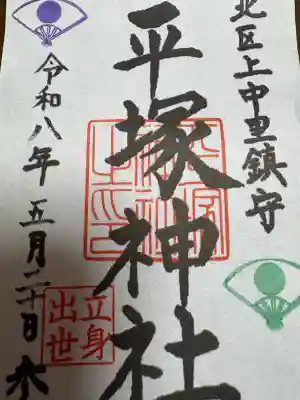 北区上中里鎮守
平塚神社
立身
出世
令和八年五月二十日参